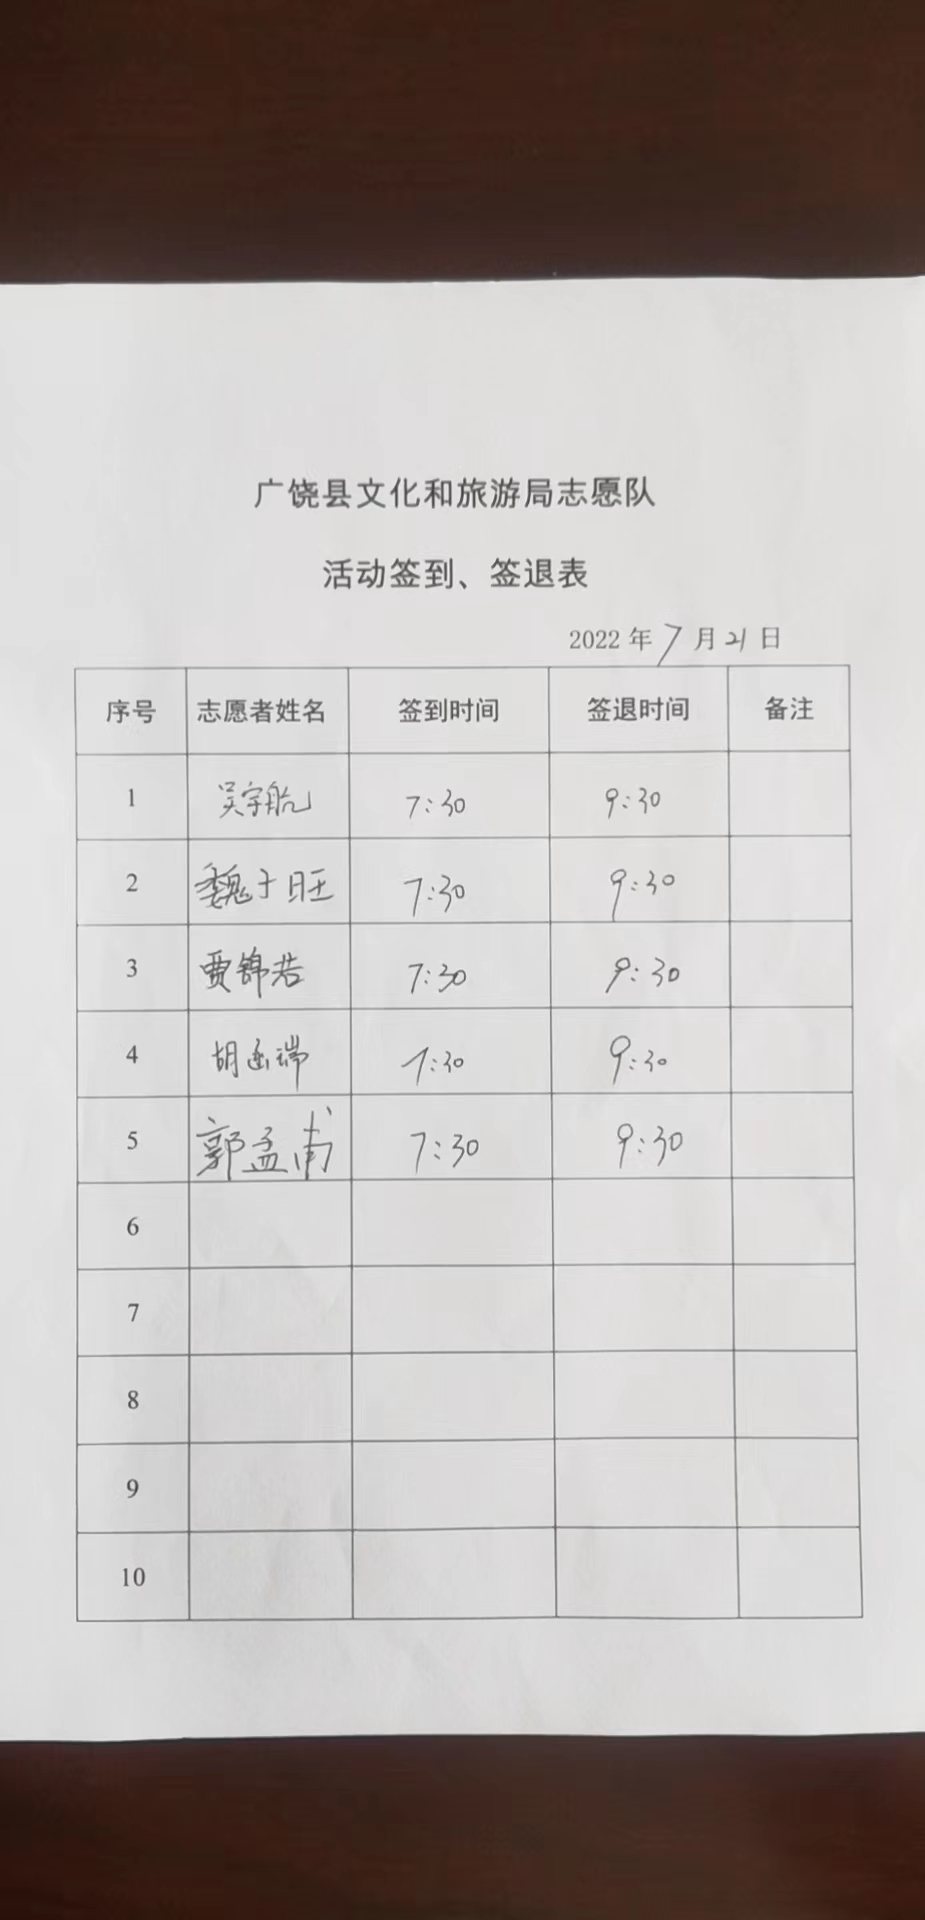 广饶县文化和旅游局志愿队
活动签到、签退表
2022 年 7 月 21 日
序号 志愿者姓名 签到时间 签退时间 备注
1 吴宇航 7:30 9:30
2 魏于旺 7:30 9:30
3 贾锦若 7:30 9:30
4 胡函端 7:30 9:30
5 郭孟甫 7:30 9:30
6
7
8
9
10